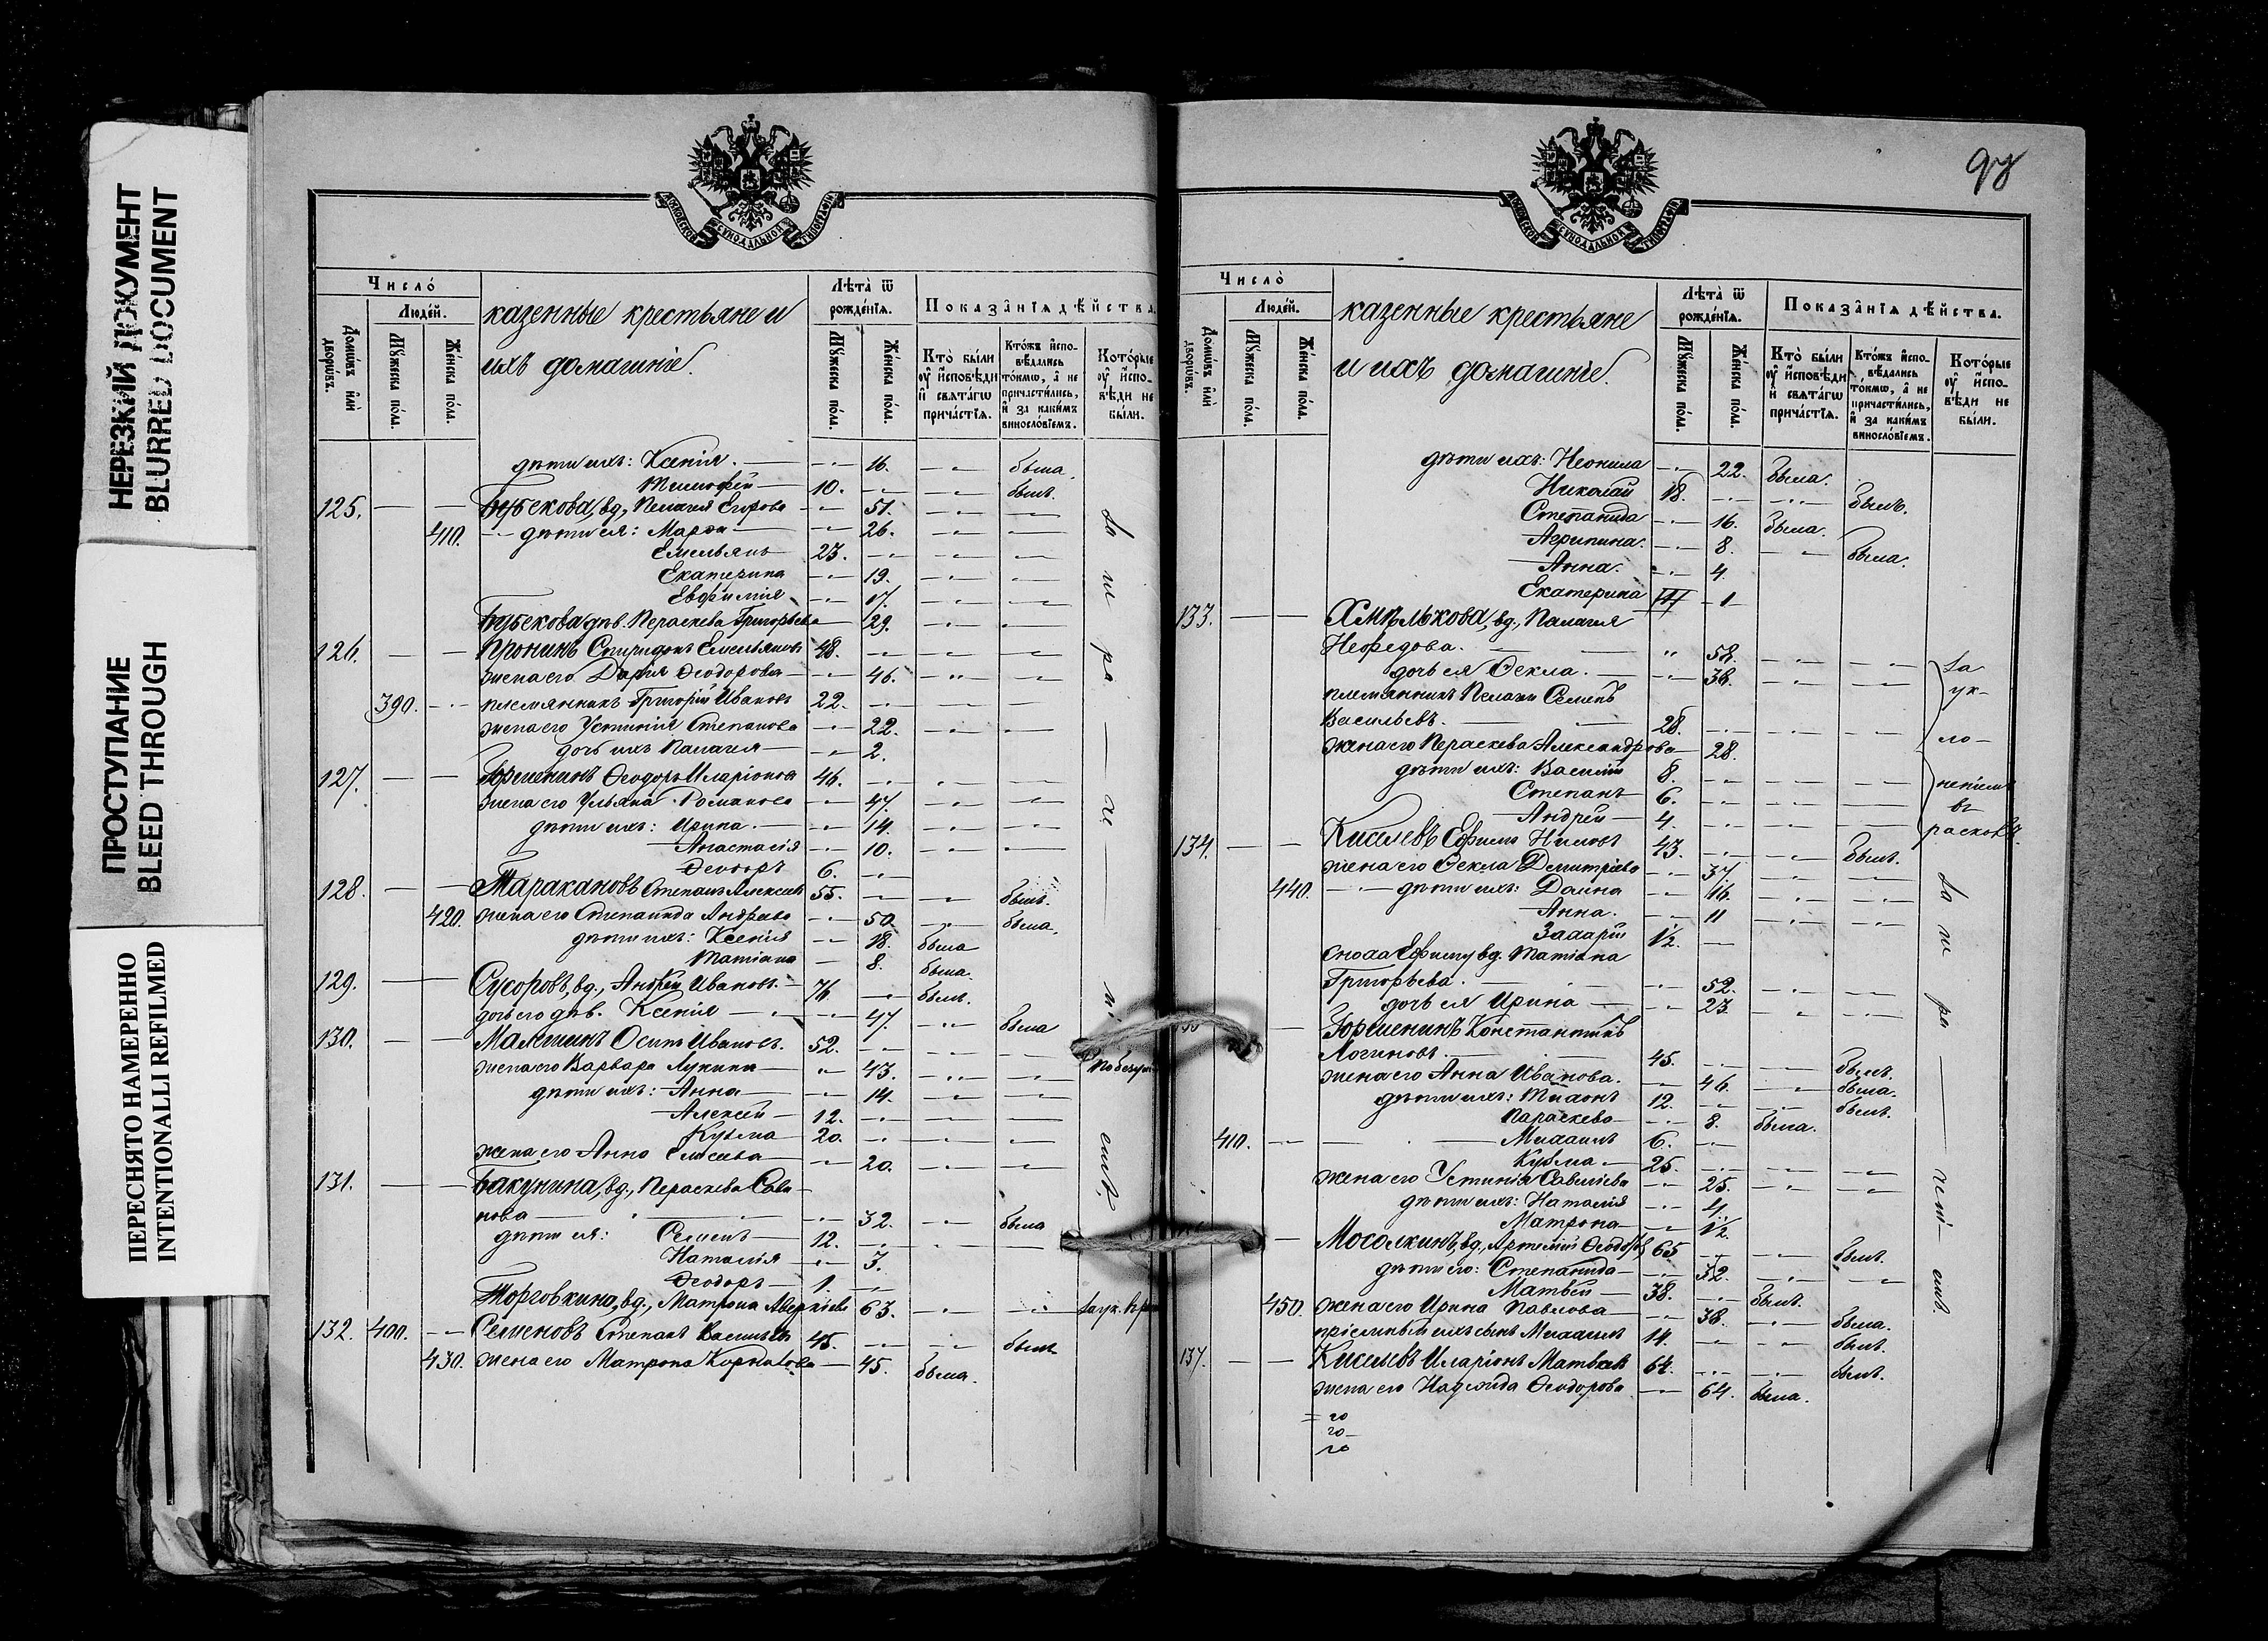 НЕРЕЗКИЙ ДОКУМЕНТ
BLURRED DOCUMENT
ПРОСТУПАНИЕ
BLEED THROUGH
ПЕРЕСНЯТО НАМЕРЕННО
INTENTIONALLI REFILMED
МОСКОВСКОЙ СѴНОДАЛЬНОЙ ТИПОГРАФІИ
Число́
Люде́й.
Домѡ́въ и҆лѝ дворѡ́въ.
Мꙋ́жеска по́ла.
Же́нска по́ла.
казенные крестьяне и
ихъ домашніе.
Лѣ́та ѿ рожде́нїѧ.
Мꙋ́жеска по́ла.
Же́нска по́ла.
Показа̑нїѧ дѣ́йства
Кто̀ бы́ли оу҆ и҆сповѣ́ди и҆ свѧта́гѡ прича́стїѧ.
Кто́жъ и҆сповѣ́дались то́кмѡ, а҆ не причасти́лись, и҆ за каки́мъ винослові́емъ.
Кото́рые оу҆ и҆сповѣ́ди не бы́ли.
дѣти ихъ: Ксенія. 16. была
Тимофей 10. былъ.
125. Бубекова, вд., Пелагея Егорова 51.
410. дѣти ея: Марѳа 26.
Емельянъ 23.
Екатерина 19.
Евфимія 17.
Бубекова дѣв. Параскева Григорьева 29.
126. Пронинъ Спиридонъ Емельяновъ 48.
жена его Дарія Ѳеодорова 46.
390. племянникъ Григорій Ивановъ 22.
жена его Устинія Степанова 22.
дочь ихъ Палагея 2.
127. Горшенинъ Ѳеодоръ Иларіоновъ 46.
жена его Ульяна Романова 47.
дѣти ихъ: Ирина. 14.
Анастасія 10.
Ѳеодоръ 6.
128. Таракановъ Степанъ Алексѣевъ 55. былъ.
420. жена его Степанида Андреева 50. была.
дѣти ихъ: Ксенія 18. была
Татіана 8. была.
129. Сусоровъ, вд., Андрей Ивановъ. 76 былъ.
дочь его дѣв. Ксенія 47. была
130. Малышинъ Осипъ Ивановъ. 52.
жена его Варвара Лукина 43.
дѣти ихъ: Анна 14.
Алексей 12.
Кузма 20.
жена его Анна Елисеева 20.
131. Бакунина, вд., Параскева Сави-
нова 32. была
дѣти ея: Семенъ 12.
Наталія 3.
Ѳеодоръ 1
Торговкина, вд., Матрона Аверкіева 63.
132. 400. Семеновъ Степанъ Васильевъ 45. былъ
430. жена его Матрона Корнилова 45. была.
97
МОСКОВСКОЙ СѴНОДАЛЬНОЙ ТИПОГРАФІИ
Число̀
Люде́й.
Домѡ́въ и҆лѝ дворѡ́въ.
Мꙋ́жеска по́ла.
Же́нска по́ла.
казенные крестьяне
и ихъ домашніе.
Лѣ́та ѿ рожде́нїѧ.
Мꙋ́жеска по́ла.
Же́нска по́ла.
Показа̑нїѧ дѣ́йства.
Кто̀ бы́ли оу҆ и҆сповѣ́ди и҆ свѧта́гѡ прича́стїѧ.
Кто́жъ и҆сповѣ́дались то́кмѡ, а҆ не причасти́лись, и҆ за каки́мъ винослові́емъ.
Кото́рые оу҆ и҆сповѣ́ди не бы́ли.
дѣти ихъ: Неонила 22. была.
Николай 18. былъ.
Степанида 16. была.
Агрипина. 8. была.
Анна. 4.
Екатерина 1
133. Хмѣлькова, вд., Палагея
Нефедова. 58.
дочь ея Ѳекла. 38.
племянникъ Пелагеи Семенъ
Васильевъ. 28.
жена его Параскева Александрова 28.
дѣти ихъ: Василій 8.
Степанъ 6.
Андрей 4.
За ук-ло-неніемъ въ расколъ.
134. Киселевъ Ефимъ Ниловъ 43. былъ.
жена его Ѳекла Дмитріева 37.
440. дѣти ихъ: Домна 16.
Анна. 11
Захарій 1½.
сноха Ефиму вд. Татіана
Григорьева. 52.
дочь ея Ирина 23.
Горшенинъ Константинъ
Логиновъ. 45. былъ.
жена его Анна Иванова. 46. была.
дѣти ихъ: Тихонъ 12. былъ.
Параскева 8. была.
410. Михаилъ 6.
Кузма 25.
жена его Устинія Савелїева 25.
дѣти ихъ: Наталія 4.
Матрона 1½.
Мосолкинъ, вд., Артемій Ѳеодоровъ 65. былъ.
дѣти его: Степанида 32.
Матвей 38. былъ.
450. жена его Ирина Павлова 38. была.
пріемный ихъ сынъ Михаилъ 14. былъ.
137. Киселевъ Иларіонъ Матвеевъ 64. былъ.
жена его Надежда Ѳеодорова 64. была.